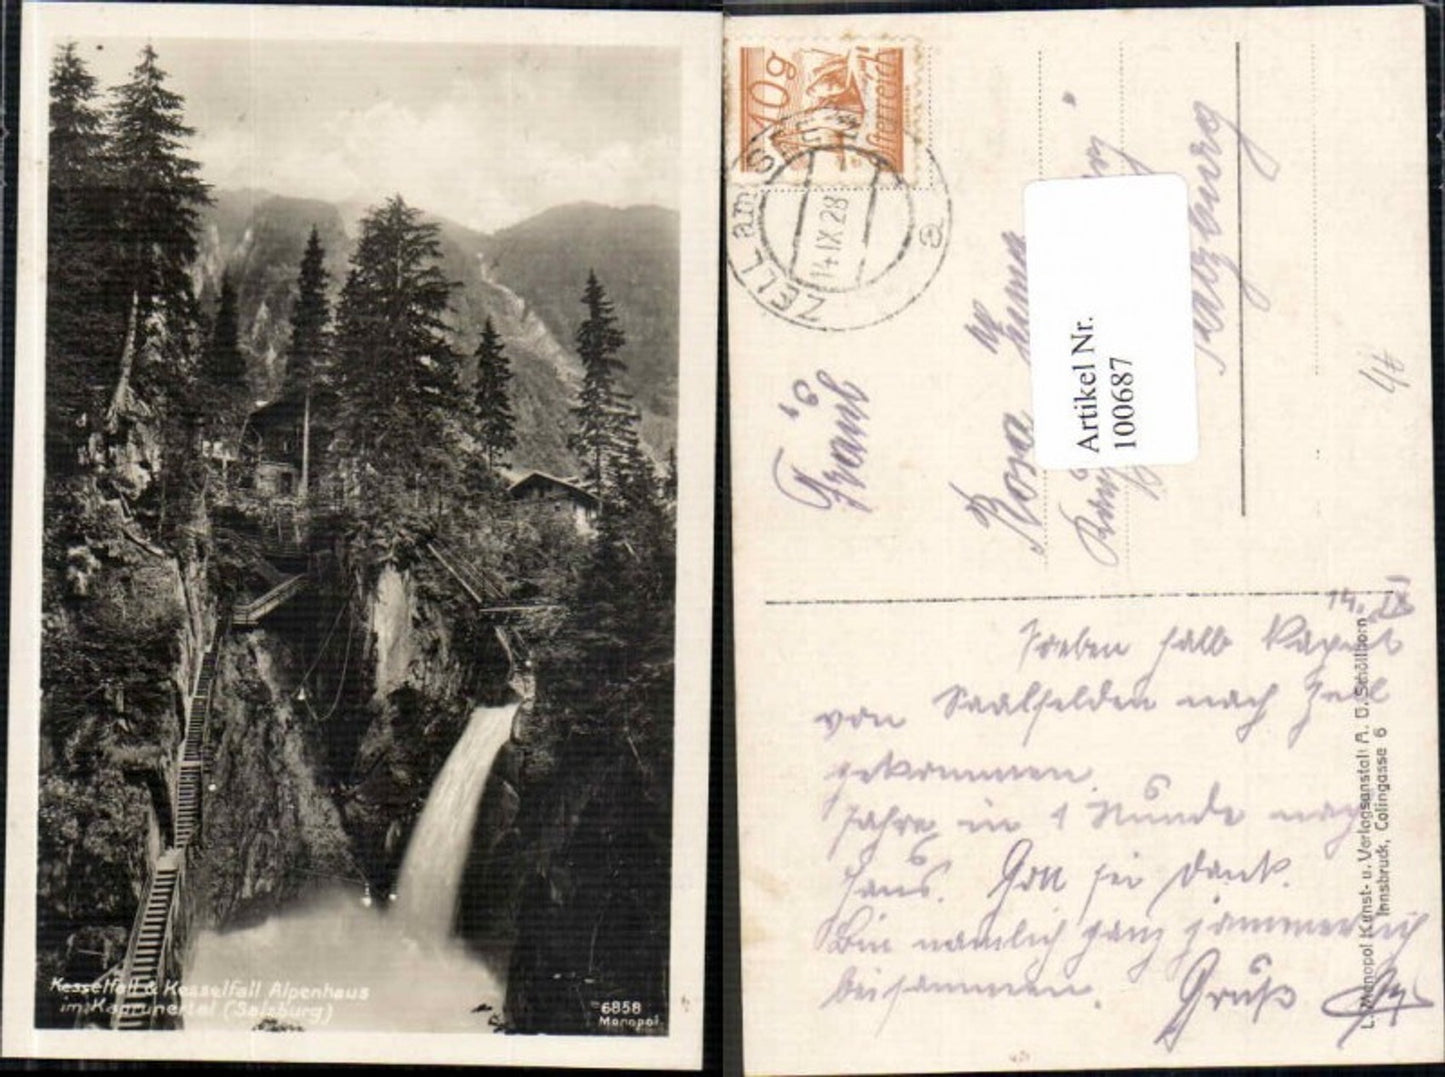 Kesselfall & Kesselfall Alpenhaus
im Kaprunertal (Salzburg)
6858
Monopol
10g
Österreich
ZELL am SEE
14 IX 28
a
Fräul
Rosa
Salzburg
Artikel Nr.
100687
44
14. IX
Soeben halb
von Saalfelden nach Zell
gekommen.
Fahre in 1 Stunde nach
Haus. Gott sei Dank.
Bin nämlich ganz jämmerlich
beisammen. Gruß
L. Monopol Kunst- u. Verlagsanstalt A. D. Schöllhorn
Innsbruck, Colingasse 6